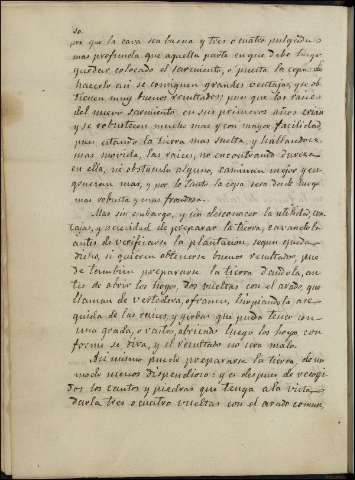 20.
por que la cava sea buena y tres ó cuatro pulgadas
mas profunda que aquella parte en que debe luego
quedar colocado el sarmiento, ó puesta la cepa: de
hacerlo asi se consiguen grandes ventajas, y se ob-
tienen muy buenos resultados; por que las raices
del nuevo sarmiento en sus primeros años crian
y se robustecen mucho mas y con mayor facilidad,
pues estando la tierra mas suelta, y hallandose
mas movida, las raices, no encontrando dureza
en ella, ni obstaculo alguno, caminan mejor y en-
gruesan mas, y por lo tanto la cepa sera desde luego
mas robusta y mas frondosa.
Mas sin embargo, y sin desconocer la utilidad, ven-
tajas, y necesidad de preparar la tierra, cavandola
antes de verificarse la plantacion, segun queda
dicho, si quieren obtenerse buenos resultados, pue-
de tambien prepararse la tierra dandola, an-
tes de abrir los hoyos, dos vueltas con el arado, que
llaman de vertedera, ó frances, limpiandola en se-
guida de las raices, y yerbas que pueda tener con
una grada, ó rastro, abriendo luego los hoyos con-
forme se dira, y el resultado no sera malo.
Asi mismo puede prepararse la tierra, de un
modo menos dispendioso: y es despues de recogi-
dos los cantos y piedras que tenga a la vista,
darla tres o cuatro vueltas con el arado comun,